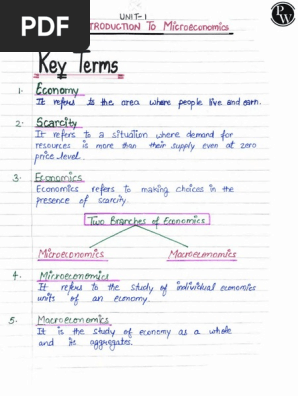 PDF
UNIT-1
INTRODUCTION TO MICROECONOMICS
PW
Key Terms
1. Economy
It refers to the area where people live and earn.
2. Scarcity
It refers to a situation where demand for
resources is more than their supply even at zero
price level.
3. Economics
Economics refers to making choices in the
presence of scarcity.
Two Branches of Economics
Microeconomics
Macroeconomics
4. Microeconomics
It refers to the study of individual economics
units of an economy.
5. Macroeconomics
It is the study of economy as a whole
and its aggregates.